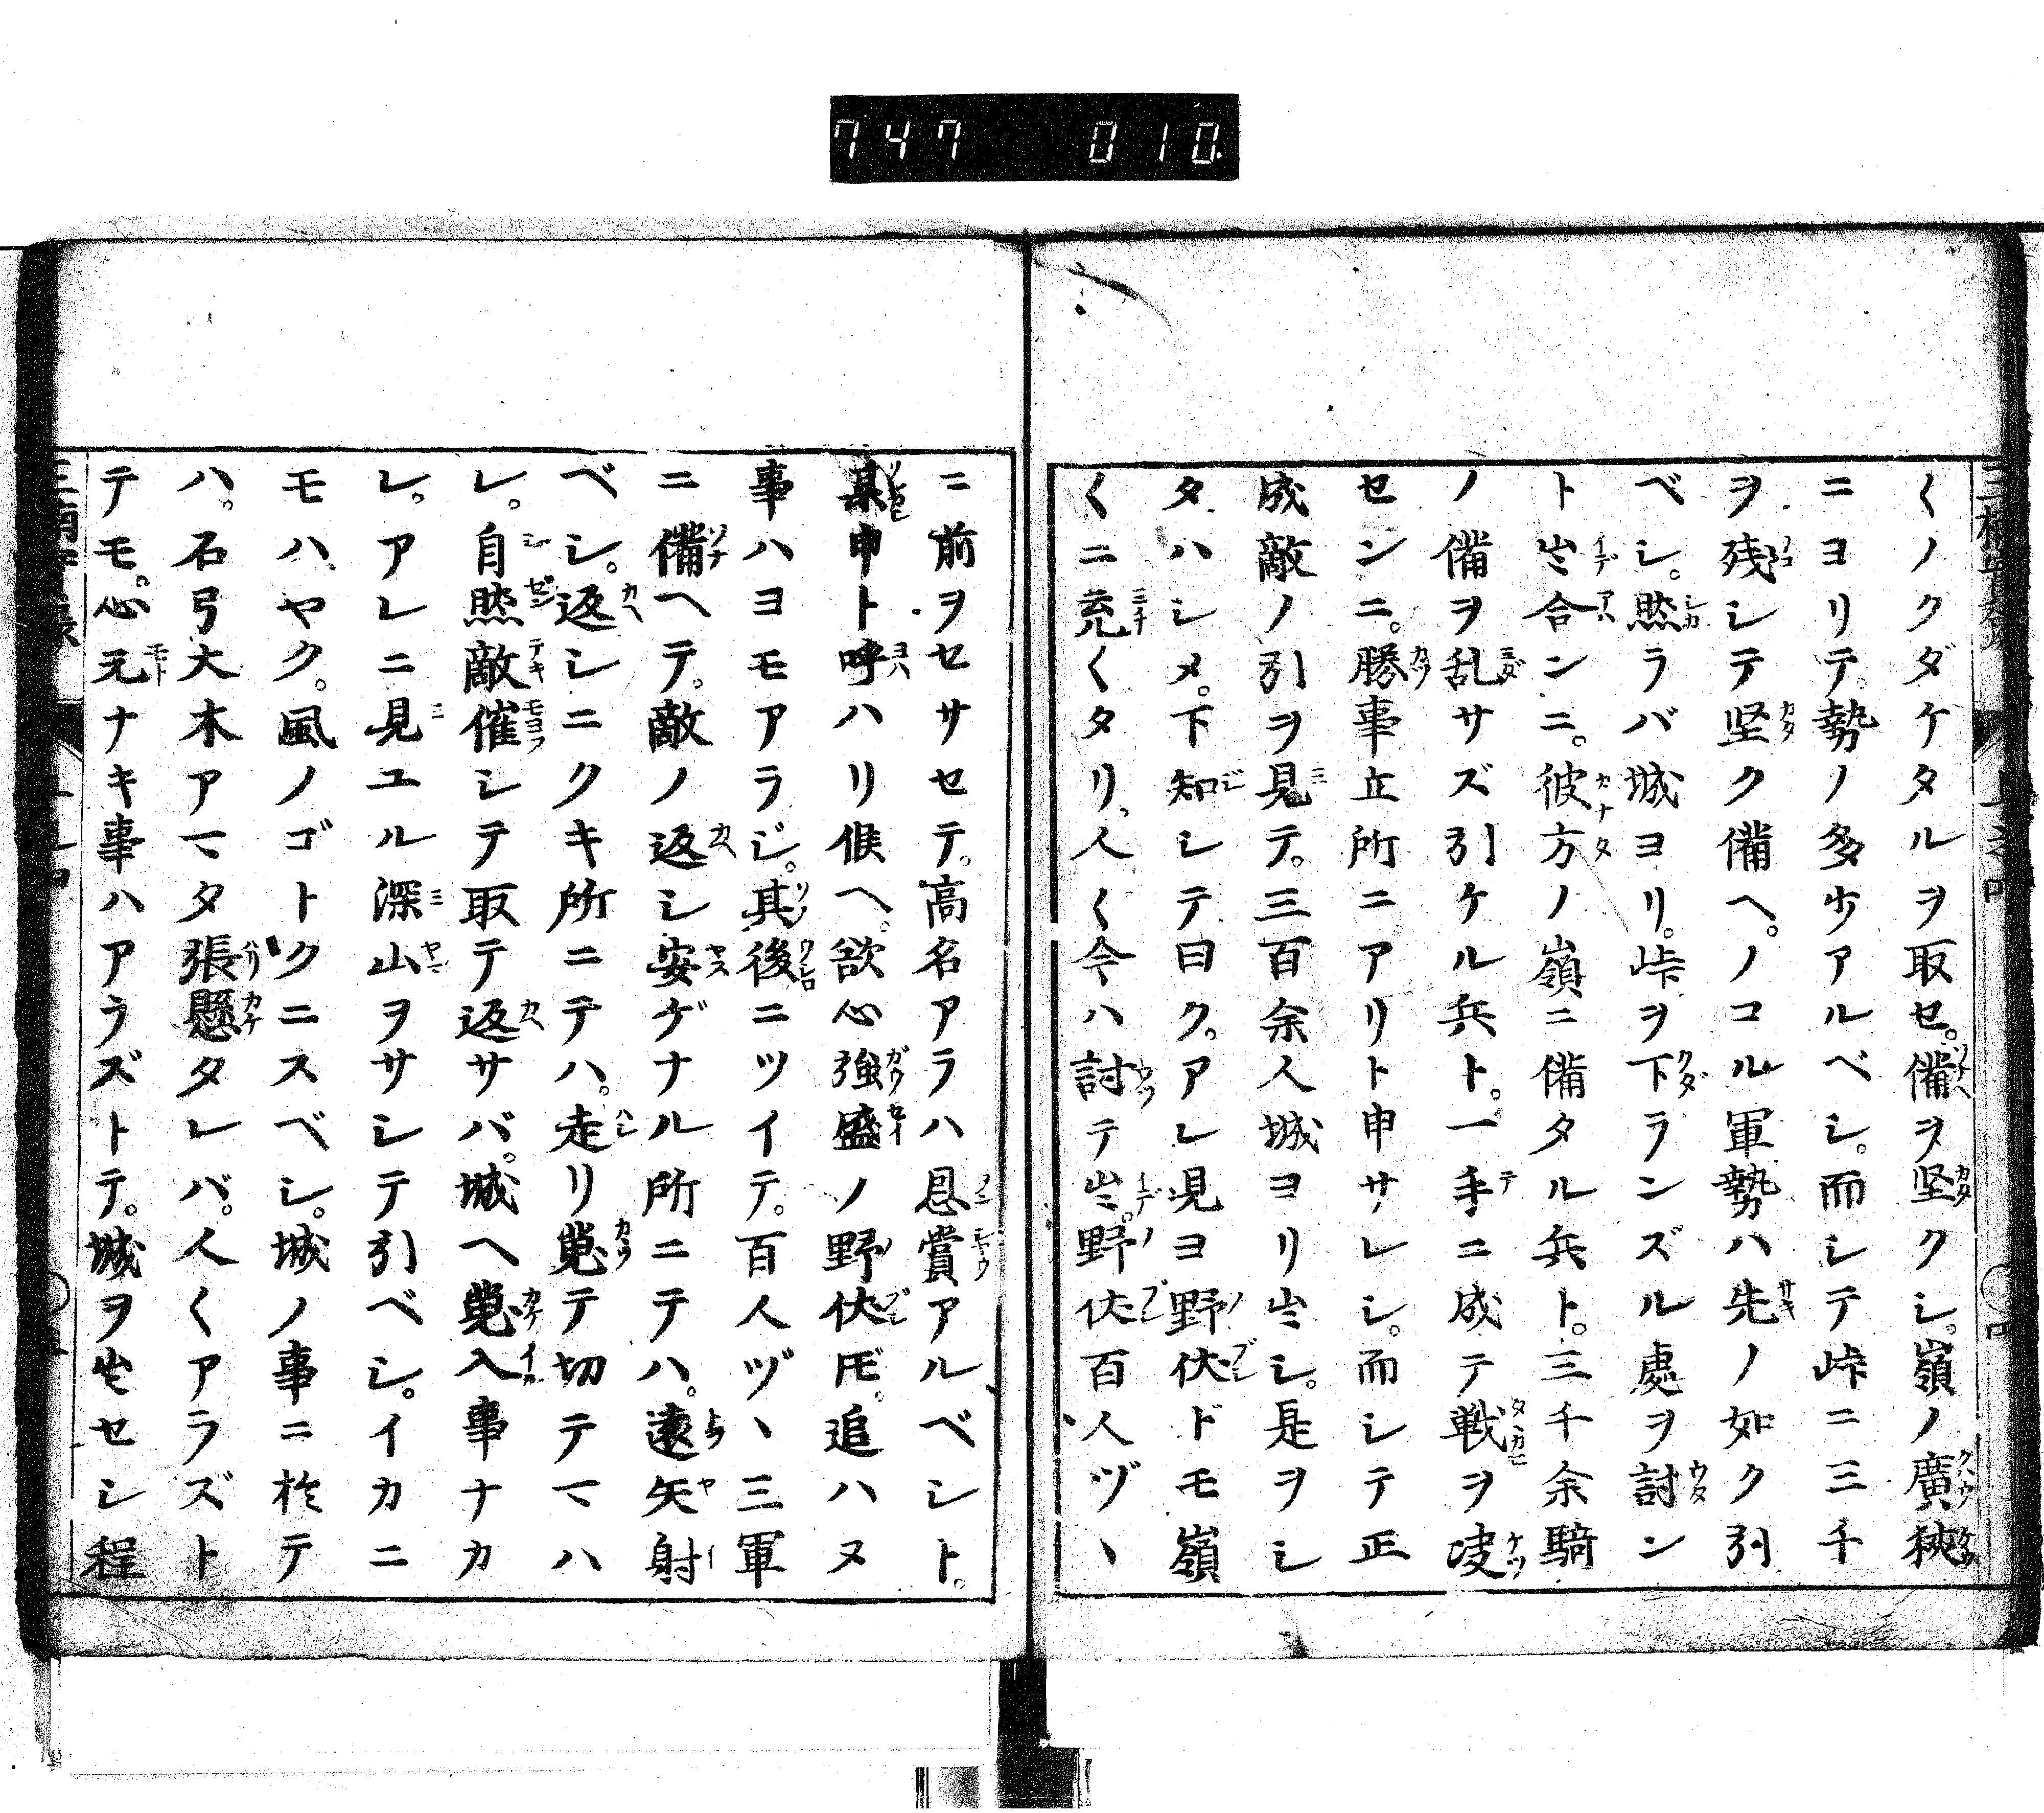 747 010
〱ノクダケタルヲ取セ。備ヲ坚クシ。嶺ノ廣狹
ニヨリテ。勢ノ多少アルベシ。而シテ峠ニ三千
ヲ残シテ坚ク備ヘ。ノコル軍勢ハ先ノ如ク引
ベシ。然ラバ城ヨリ。峠ヲ下ランズル處ヲ討ン
ト出合ンニ。彼方ノ嶺ニ備タル兵ト。三千余騎
ノ備ヲ乱サズ引ケル兵ト。一手ニ成テ戦ヲ决
センニ。勝事正所ニアリト申サレシ。而シテ正
成敵ノ引ヲ見テ。三百余人城ヨリ出シ。是ヲシ
タハシメ。下知シテ曰ク。アレ見ヨ野伏ドモ嶺
〱ニ充〱タリ。人〱今ハ討テ出。野伏百人ヅヽ
ニ前ヲセサセテ。高名アラハ恩賞アルベシト。
某申ト呼ハリ候ヘ。欲心強盛ノ野伏𪜈。追ハヌ
事ハヨモアラジ。其後ニツイテ。百人ヅヽ三軍
ニ備ヘテ。敵ノ返シ安ゲナル所ニテハ。遠矢射
ベシ。返シニクキ所ニテハ。走リ懸テ切テマハ
レ。自然敵催シテ取テ返サバ。城ヘ懸入事ナカ
レ。アレニ見ユル深山ヲサシテ引ベシ。イカニ
モハヤク。風ノゴトクニスベシ。城ノ事ニ於テ
ハ。石弓大木アマタ張懸タレバ。人〱アラズト
テモ。心元ナキ事ハアラズトテ。城ヲ出セシ程